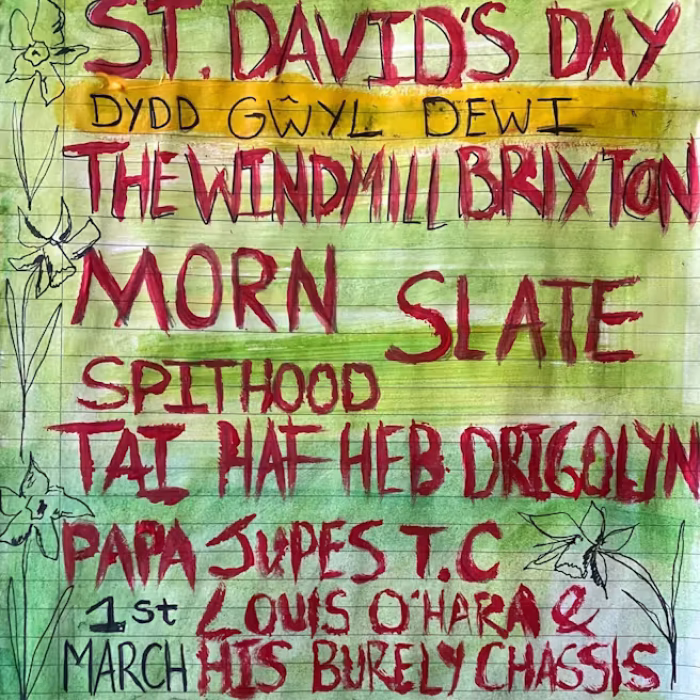 ST. DAVID'S DAY
DYDD GŴYL DEWI
THE WINDMILL BRIXTON
MORN SLATE
SPITHOOD
TAI HAF HEB DRIGOLYN
PAPA JUPES T.C
1st LOUIS O'HARA &
MARCH HIS BURELY CHASSIS